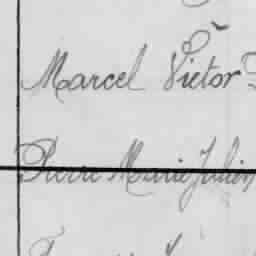 Marcel Victor
Pierre Marie Julien